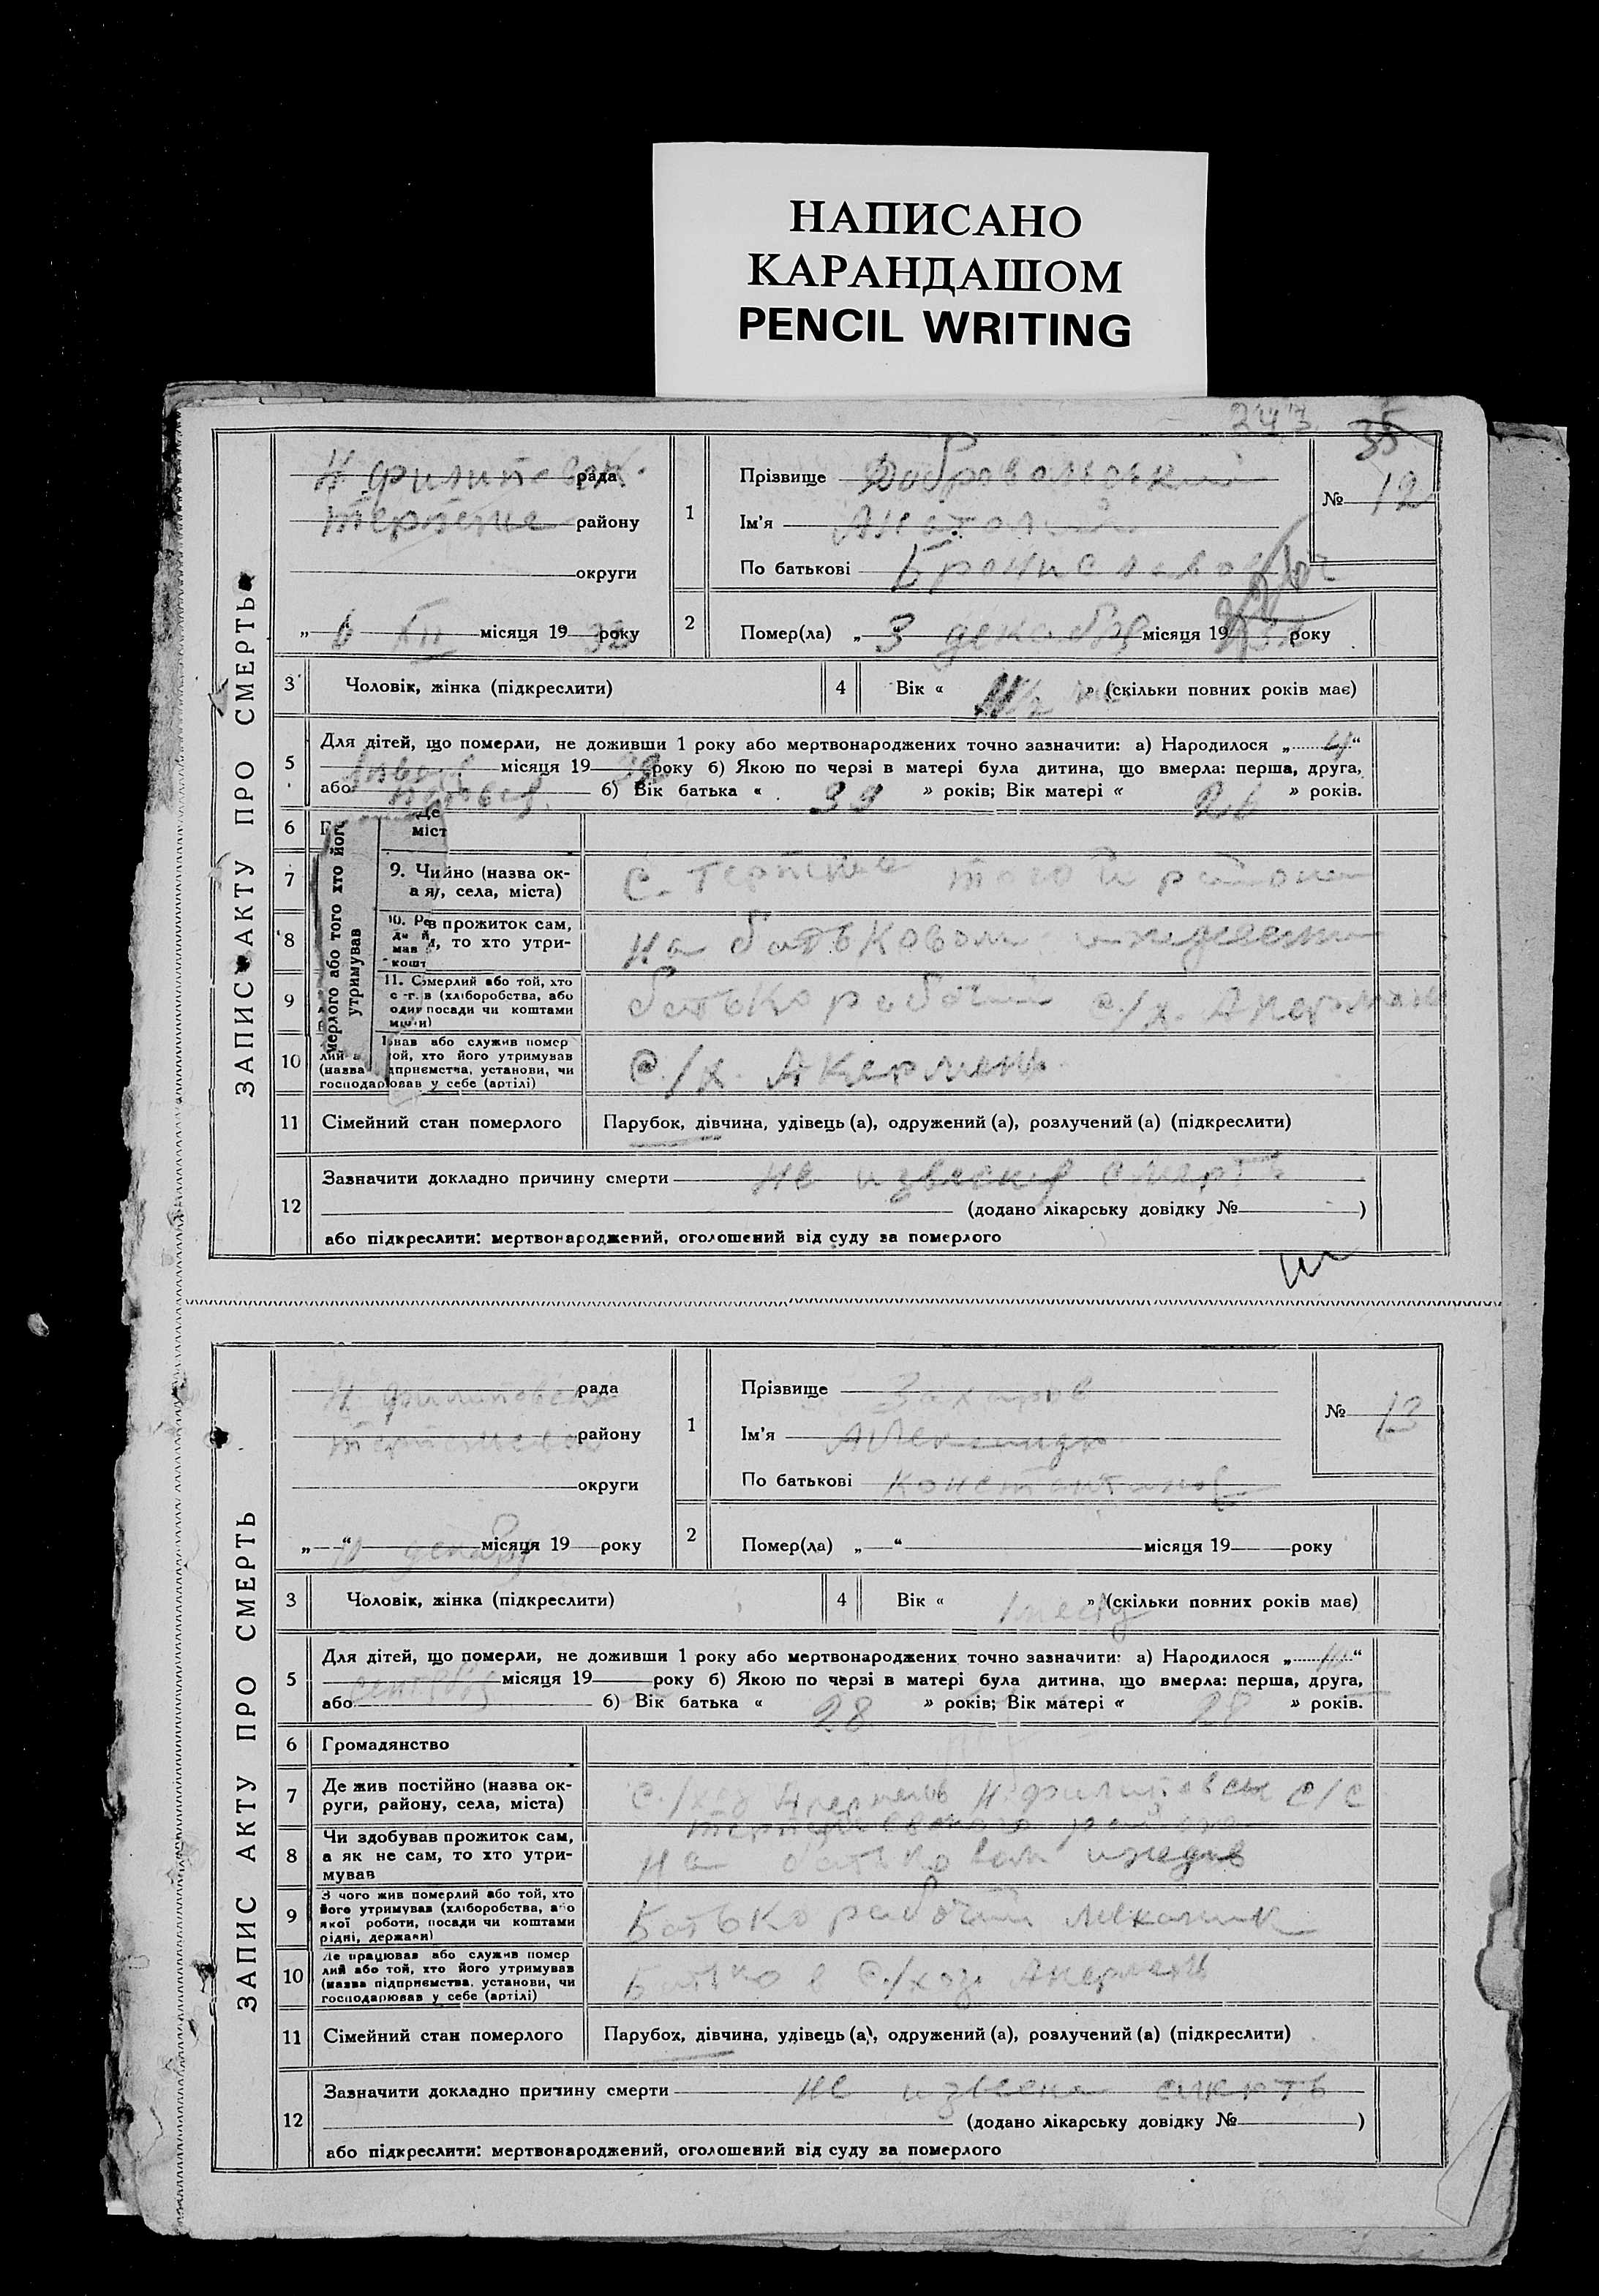 НАПИСАНО
КАРАНДАШОМ
PENCIL WRITING
243 35
ЗАПИС АКТУ ПРО СМЕРТЬ
Н Филиповск. рада
Терпение району
округи
„ 6 “ XII місяця 19 32 року
1
Прізвище Добровольський
Ім’я Анатолий
По батькові Брониславович
№ 12
2
Помер(ла) „ 3 декабря місяця 19 року
3 Чоловік, жінка (підкреслити)
4 Вік « » (скільки повних років має)
5 Для дітей, що померли, не доживши 1 року або мертвонароджених точно зазначити: а) Народилося „ 4 “
місяця 19 32 року б) Якою по черзі в матері була дитина, що вмерла: перша, друга,
або б) Вік батька « 39 » років; Вік матері « 26 » років.
6
міст
мерлого або того хто його
утримував
7 9. Чи йно (назва ок-
а я/, села, міста)
с. Терпение того ж района
8 10. Ре в прожиток сам,
, то хто утри-
кошт
на батьковом иждевении
9 11. С мерлий або той, хто
в (хліборобства, або
один посади чи коштами
батько рабочий с/х. Акермень
10 вав або служив помер
лий а той, хто його утримував
(назва дприємства, установи, чи
господарював у себе (артілі)
с./х. Акермень
11 Сімейний стан померлого Парубок, дівчина, удівець (а), одружений (а), розлучений (а) (підкреслити)
12 Зазначити докладно причину смерти не смерть
(додано лікарську довідку № )
або підкреслити: мертвонароджений, оголошений від суду за померлого
ЗАПИС АКТУ ПРО СМЕРТЬ
Н Филиповск рада
району
округи
„ 10 “ декабря місяця 19 року
1
Прізвище Захаров
Ім’я Александр
По батькові Константинов
№ 13
2
Помер(ла) „ “ місяця 19 року
3 Чоловік, жінка (підкреслити)
4 Вік « » (скільки повних років має)
5 Для дітей, що померли, не доживши 1 року або мертвонароджених точно зазначити: а) Народилося „ 10 “
сентября місяця 19 року б) Якою по черзі в матері була дитина, що вмерла: перша, друга,
або б) Вік батька « 28 » років; Вік матері « 28 » років.
6 Громадянство
7 Де жив постійно (назва ок-
руги, району, села, міста)
С./хоз Акермень Н-Филиповск с/с
района
8 Чи здобував прожиток сам,
а як не сам, то хто утри-
мував
на батьковом иждив
9 З чого жив померлий або той, хто
його утримував (хліборобства, або
якої роботи, посади чи коштами
рідні, держави)
Батько рабочий механик
10 Де працював або служив помер
лий або той, хто його утримував
(назва підприємства, установи, чи
господарював у себе (артілі)
Батько в С./хоз. Акермень
11 Сімейний стан померлого Парубок, дівчина, удівець (а), одружений (а), розлучений (а) (підкреслити)
12 Зазначити докладно причину смерти не смерть
(додано лікарську довідку № )
або підкреслити: мертвонароджений, оголошений від суду за померлого